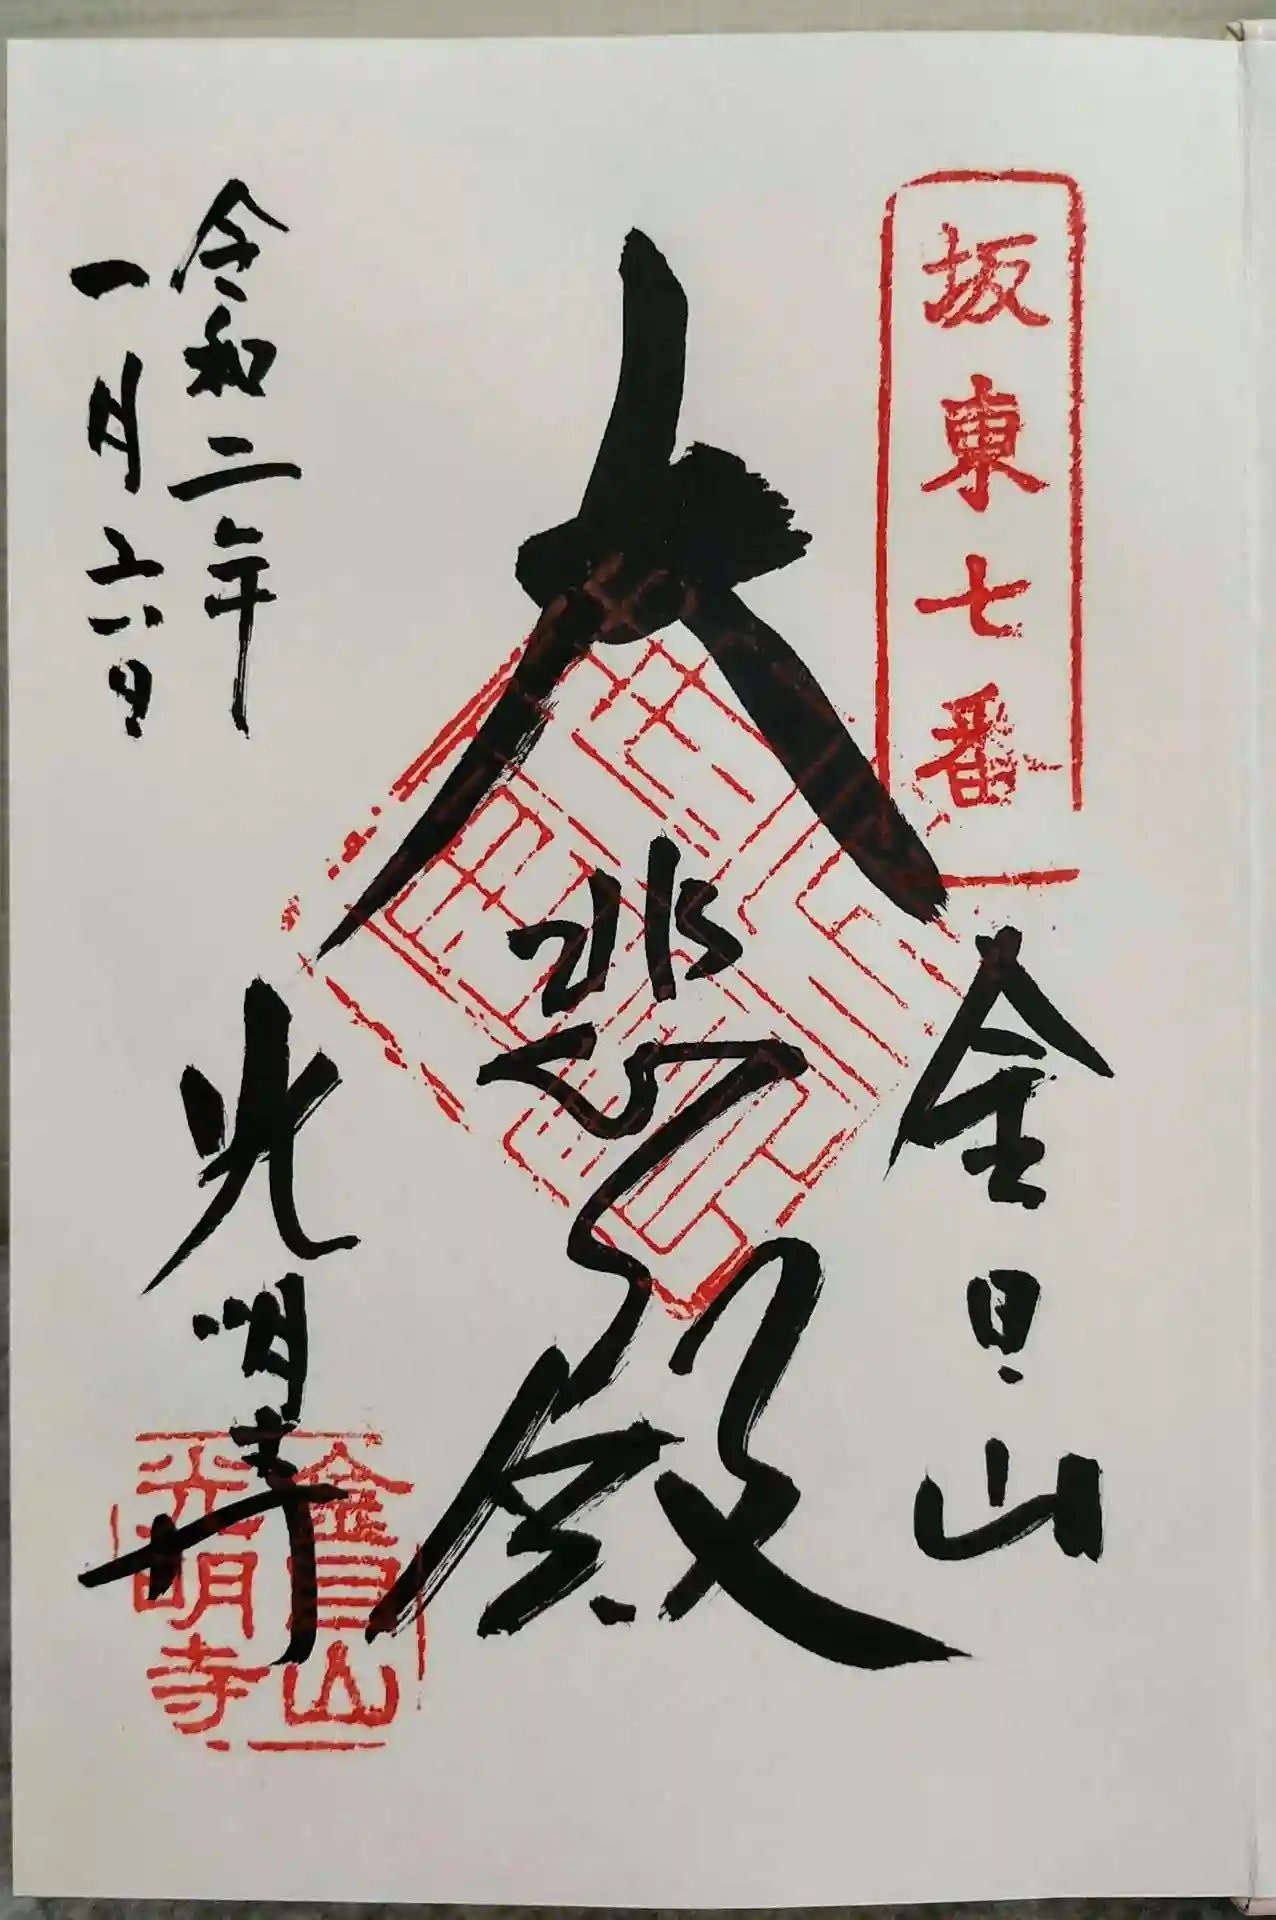 坂東七番
金目山
大悲殿
令和二年
一月六日
光明寺
金目山
光明寺